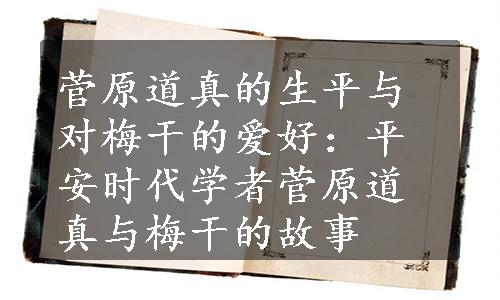 菅原道真的生平与
对梅干的爱好：平
安时代学者菅原道
真与梅干的故事